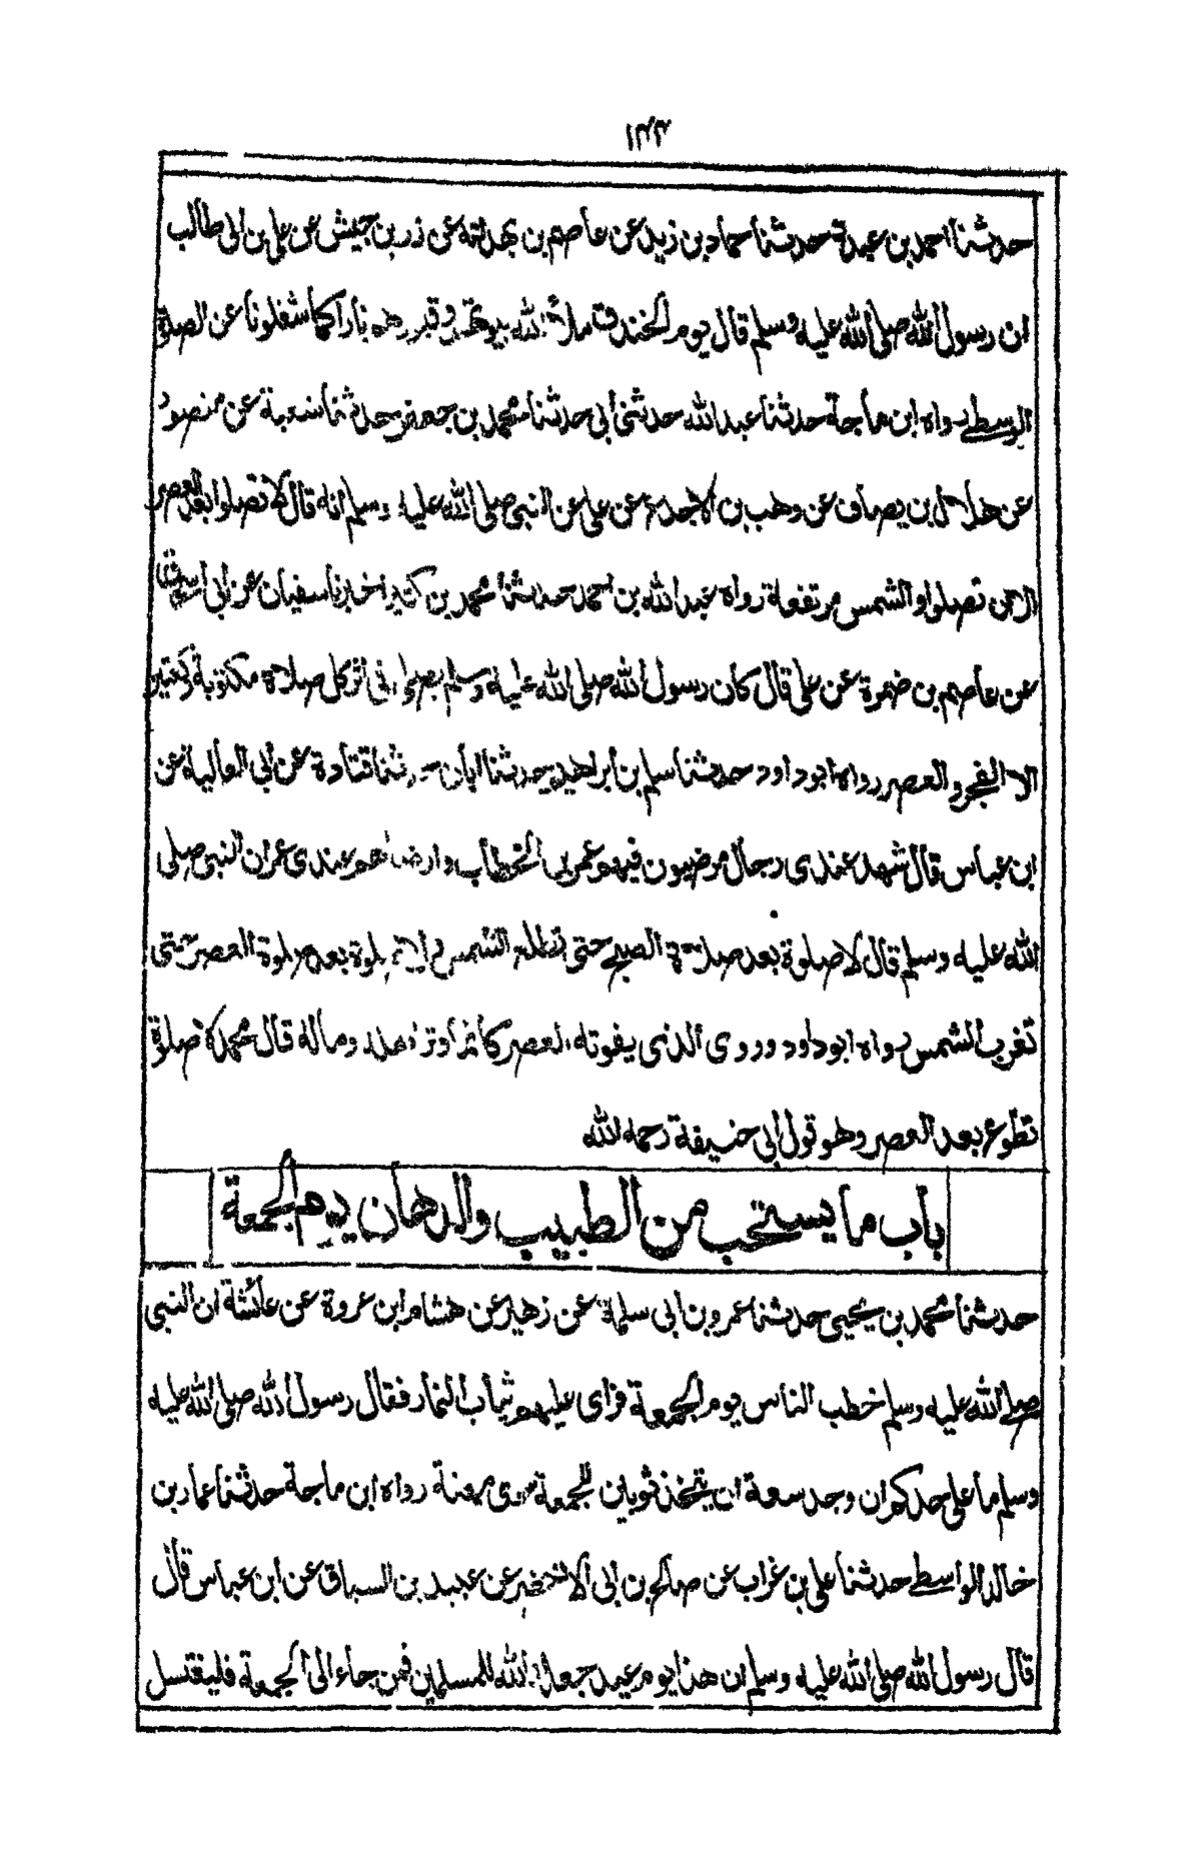 حدثنا احمد بن عبدة حدثنا حماد بن زيد عن عاصم بن بهدلة عن زر بن حبيش عن علي بن ابى طالب
ان رسول الله صلى الله عليه وسلم قال يوم الخندق ملأ الله بيوتهم وقبورهم نارا كما شغلونا عن الصلوة
الوسطى رواه ابن ماجة حدثنا عبد الله حدثنى أبى حدثنا محمد بن جعفر حدثنا شعبة عن منصور
عن هلال بن يصاف عن وهب بن الاجدع عن على عن النبى صلى الله عليه وسلم انه قال لا تصلوا بعد العصر
الا ان تصلوا والشمس مرتفعة رواه عبد الله بن احمد حدثنا محمد بن كثير اخبرنا سفيان عن ابى اسحاق
عن عاصم بن ضمرة عن على قال كان رسول الله صلى الله عليه وسلم يصلى فى اثر كل صلاة مكتوبة ركعتين
الا الفجر والعصر رواه ابو داود حدثنا سلم بن ابراهيم حدثنا ابان حدثنا قتادة عن أبى العالية عن
ابن عباس قال شهد عندى رجال مرضيون فيهم عمر بن الخطاب وارضاهم عندى عمر ان النبى صلى
الله عليه وسلم قال لا صلوة بعد صلاة الصبح حتى تطلع الشمس ولا صلوة بعد صلوة العصر حتى
تغرب الشمس رواه ابو داود وروى الذى يفوته العصر كانما وتر اهله وماله قال محمد لا صلوة
تطوع بعد العصر وهو قول ابى حنيفة رحمه الله
باب ما يستحب من الطيب والدهان يوم الجمعة
حدثنا محمد بن يحيى حدثنا عمرو بن أبى سلمة عن زهير عن هشام ابن عروة عن عائشة ان النبى
صلى الله عليه وسلم خطب الناس يوم الجمعة فرأى عليهم ثياب النمار فقال رسول الله صلى الله عليه
وسلم ما على احدكم ان وجد سعة ان يتخذ ثوبان للجمعة سوى مهنة رواه ابن ماجة حدثنا عمار بن
خالد الواسطى حدثنا على بن غراب عن صالح بن ابى الاخضر عن عبيد بن السباق عن ابن عباس قال
قال رسول الله صلى الله عليه وسلم ان هذا يوم عيد جعله الله للمسلمين فمن جاء الى الجمعة فليغتسل